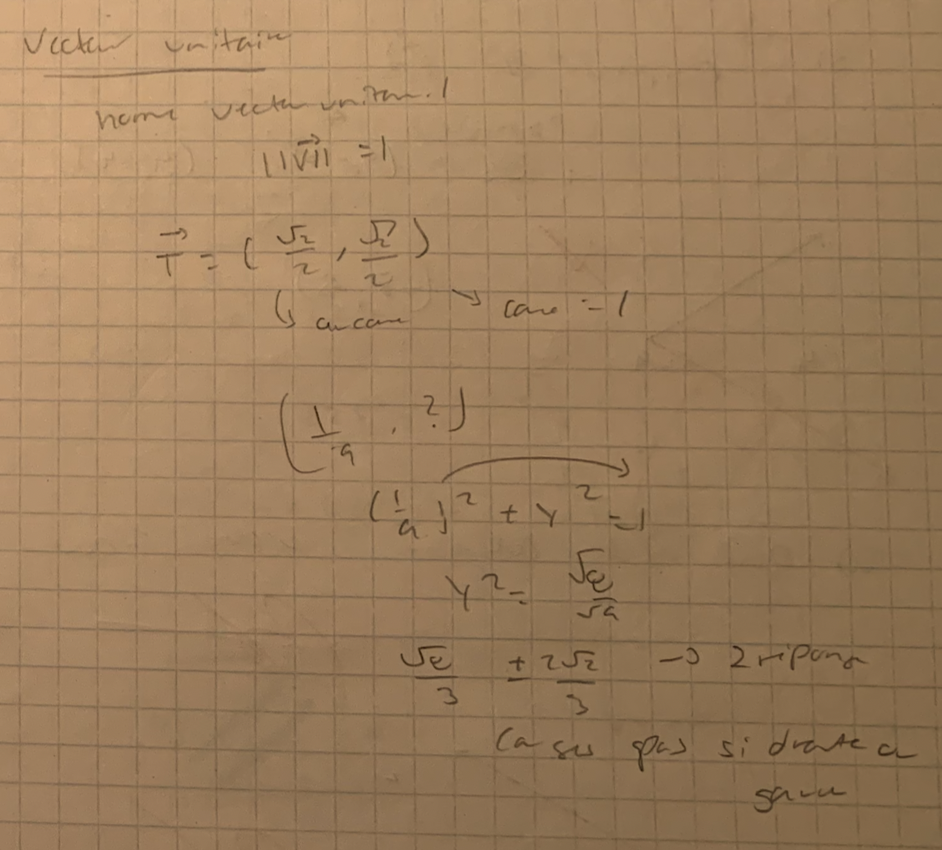 Vecteur unitaire
norme vecteur unitaire. 1
||V⃗|| = 1
T⃗ = ( √2/2 , √2/2 )
↳ au carré ↘ carré = 1
( 1/9 , ? )
(1/9)² + Y² = 1
Y² = √8/√9
√8/3 ± 2√2/3 → 2 répons
pas si droite a